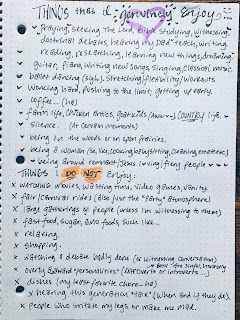 THINGS that I genuinely Enjoy:
✓ Praying, seeking The Lord, Bible studying, witnessing,
doctrinal debates, hearing my Dad teach, writing,
reading, researching, learning new things, drawing,
guitar, piano, writing new songs, singing, classical music,
ballet dancing (sigh), stretching/flexibility/workouts.
✓ Working hard, pushing to the limit, getting up early.
✓ coffee... (ha)
✓ farm life, chickens, goats, COUNTRY life.
✓ Silence. (At certain moments)
✓ being in the woods or an open prairies.
✓ being a woman (so, like, cooking, babysitting, cleaning, etc)
✓ being around remnant/Jesus loving/fiery people
THINGS I DO NOT Enjoy:
x watching movies, wasting time, video games, vanity.
x fair/carnival rides (also just the "party" atmosphere)
x large gatherings of people (unless I'm witnessing to them)
x fast food, sugar, and foods such like...
x relaxing.
x shopping.
x watching a debate badly done (or witnessing conversation)
x overly awkward personalities (extroverts or introverts...)
x dishes (my least favorite chore...ha)
x hearing this generation "talk" (when and if they do).
x people who irritate my legs or make me mad.